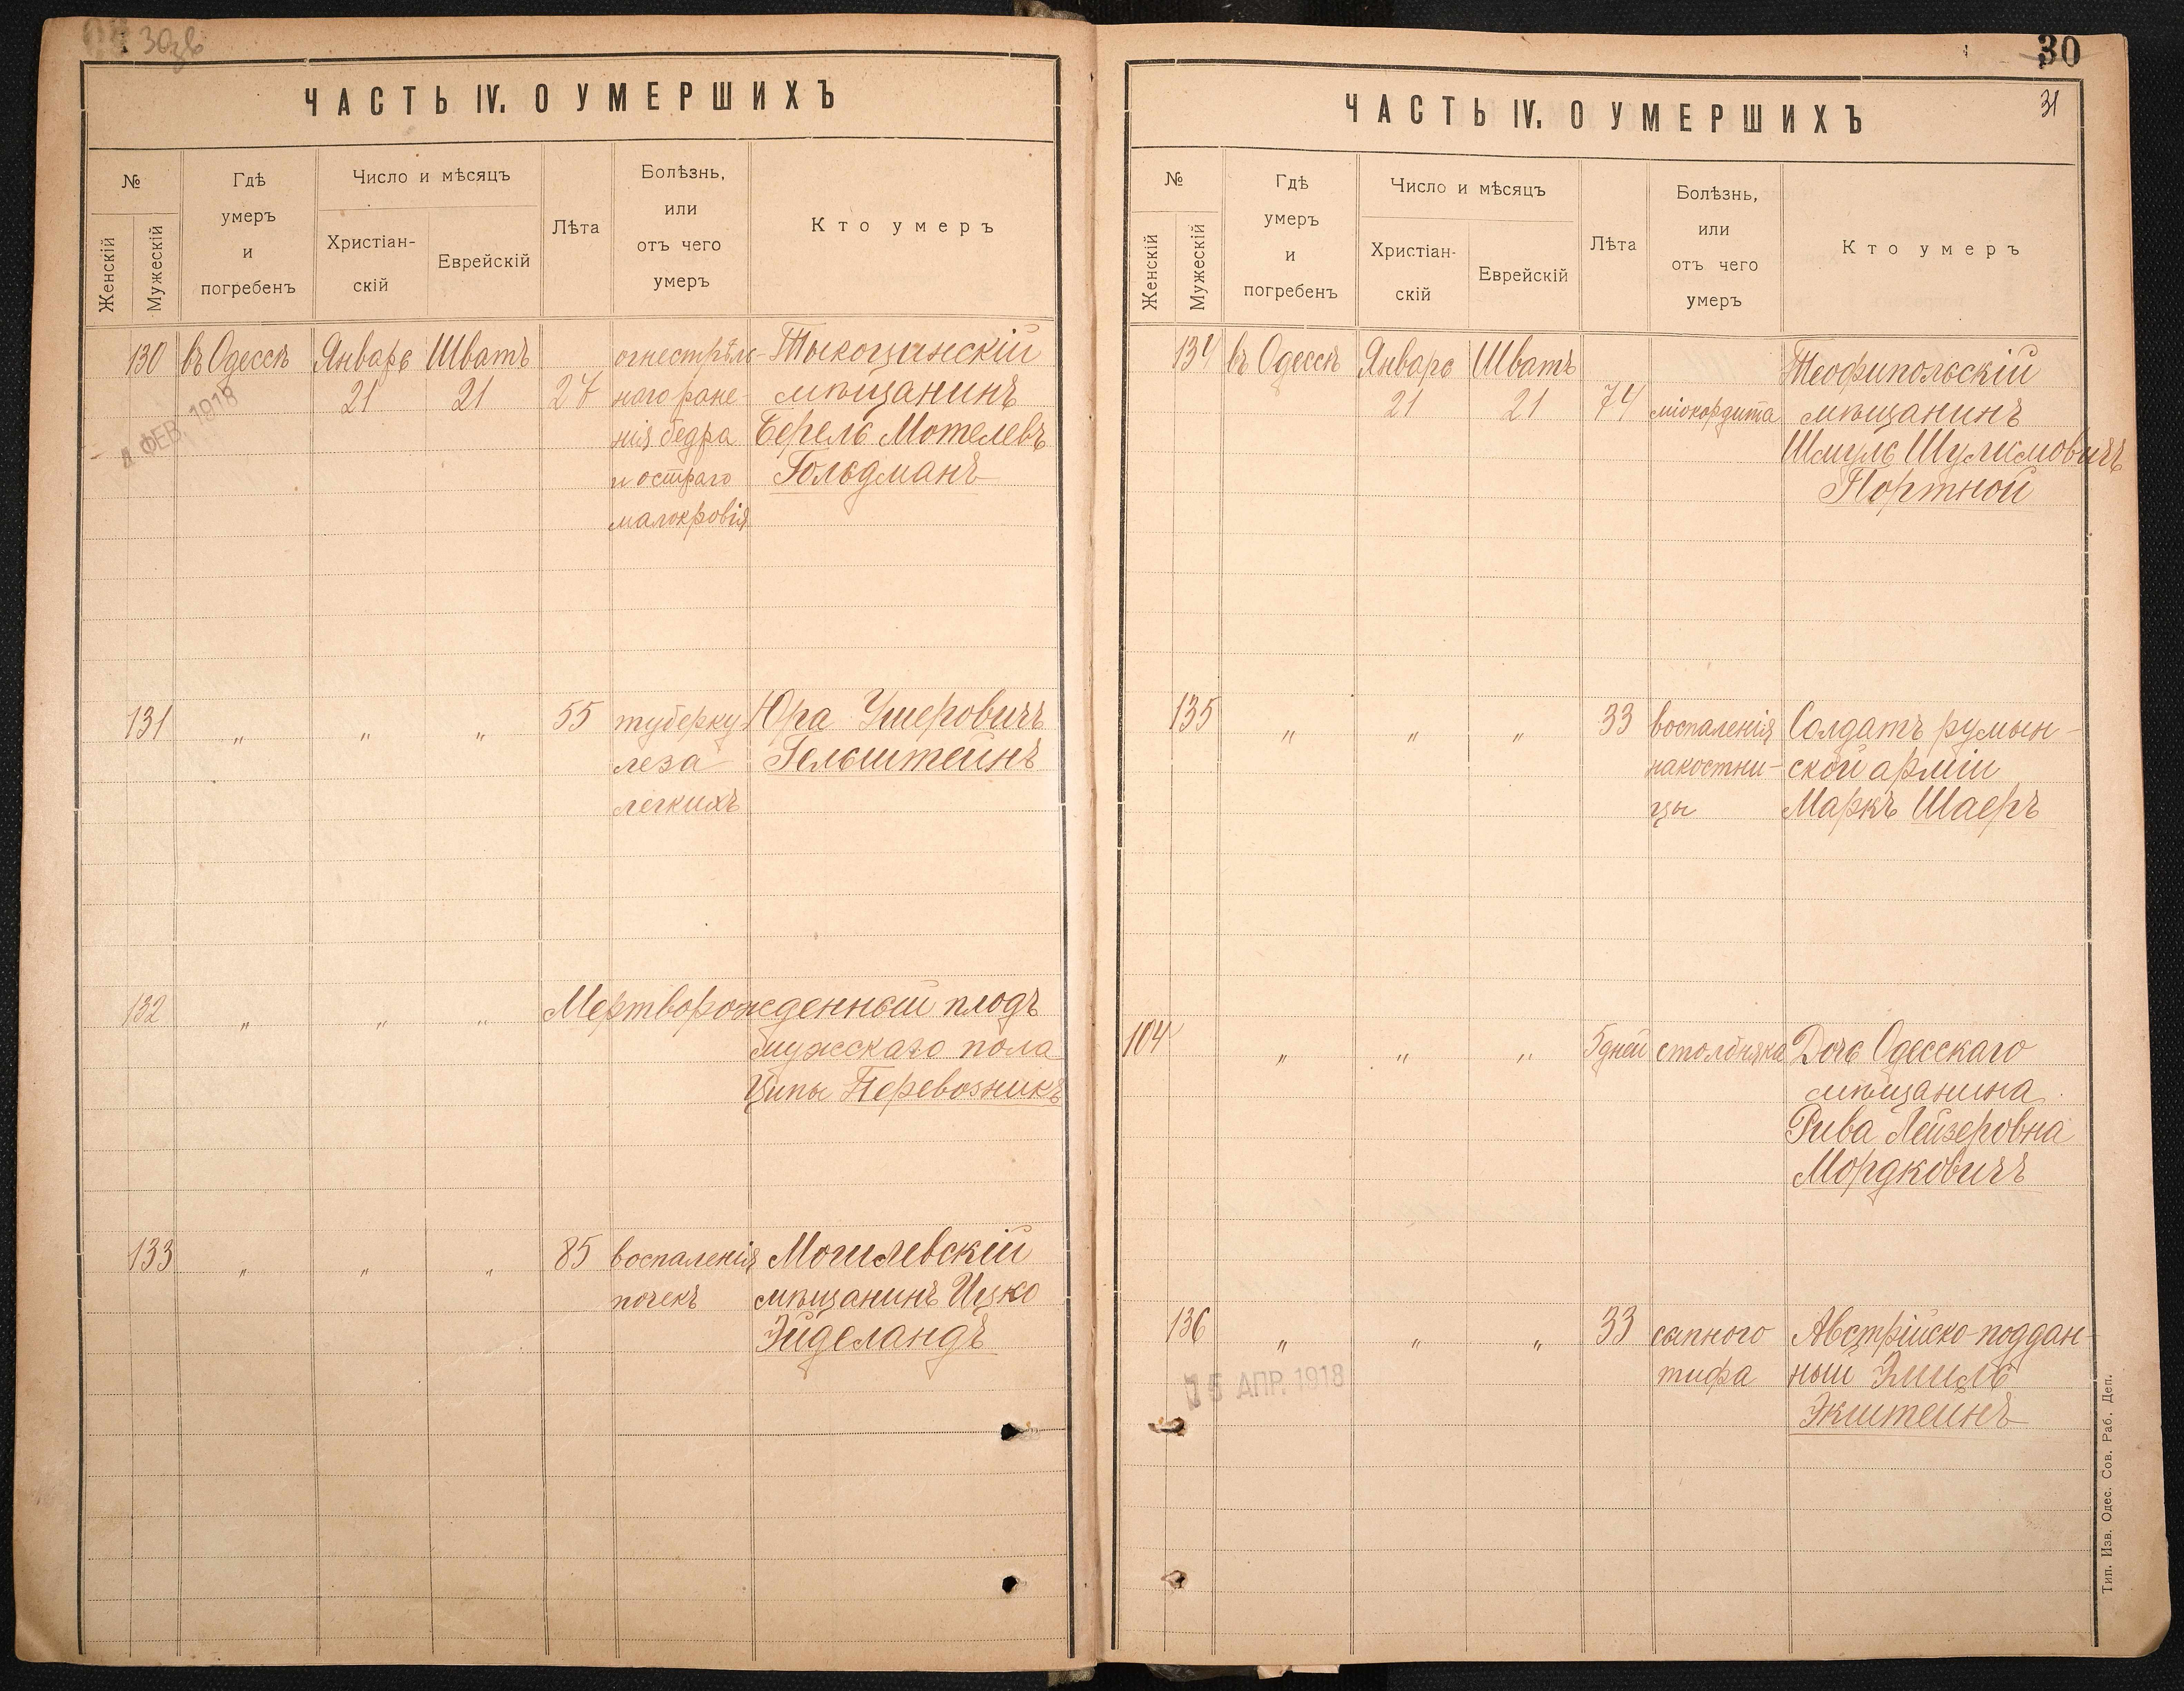 30зв
ЧАСТЬ IV. О УМЕРШИХЪ
№
Женскій
Мужескій
Гдѣ
умеръ
и
погребенъ
Число и мѣсяцъ
Христіан-
скій
Еврейскій
Лѣта
Болѣзнь,
или
отъ чего
умеръ
Кто умеръ
130 въ Одессѣ Январь Шватъ огнестрѣль- Тыкоцинскій
21 21 27 наго ране- мѣщанинъ
нія бедра Берель Мотелевъ
и остраго Гольдманъ
малокровія
4 ФЕВ. 1918
131 " " " 55 туберку Юра Ушеровичъ
леза Гельштейнъ
легкихъ
132 " " " Мертворожденный плодъ
мужскаго пола
Ципы Перевозникъ
133 " " " 85 воспаленія Могилевскій
почекъ мѣщанинъ Ицко
Эйделандъ
30
31
ЧАСТЬ IV. О УМЕРШИХЪ
№
Женскій
Мужескій
Гдѣ
умеръ
и
погребенъ
Число и мѣсяцъ
Христіан-
скій
Еврейскій
Лѣта
Болѣзнь,
или
отъ чего
умеръ
Кто умеръ
134 въ Одессѣ Январь Шватъ Теофипольскій
21 21 74 міокордита мѣщанинъ
Шмуль Шулимовичъ
Портной
135 " " " 33 воспаленія Солдатъ румын-
накостни- ской арміи
цы Маркъ Шаеръ
104 " " " 5 дней столбняка Дочь Одесскаго
мѣщанина
Рива Лейзеровна
Мордковичъ
136 " " " 33 сыпного Австрійско-поддан-
тифа ный Эмиль
Экштейнъ
15 АПР. 1918
Тип. Изв. Одес. Сов. Раб. Деп.